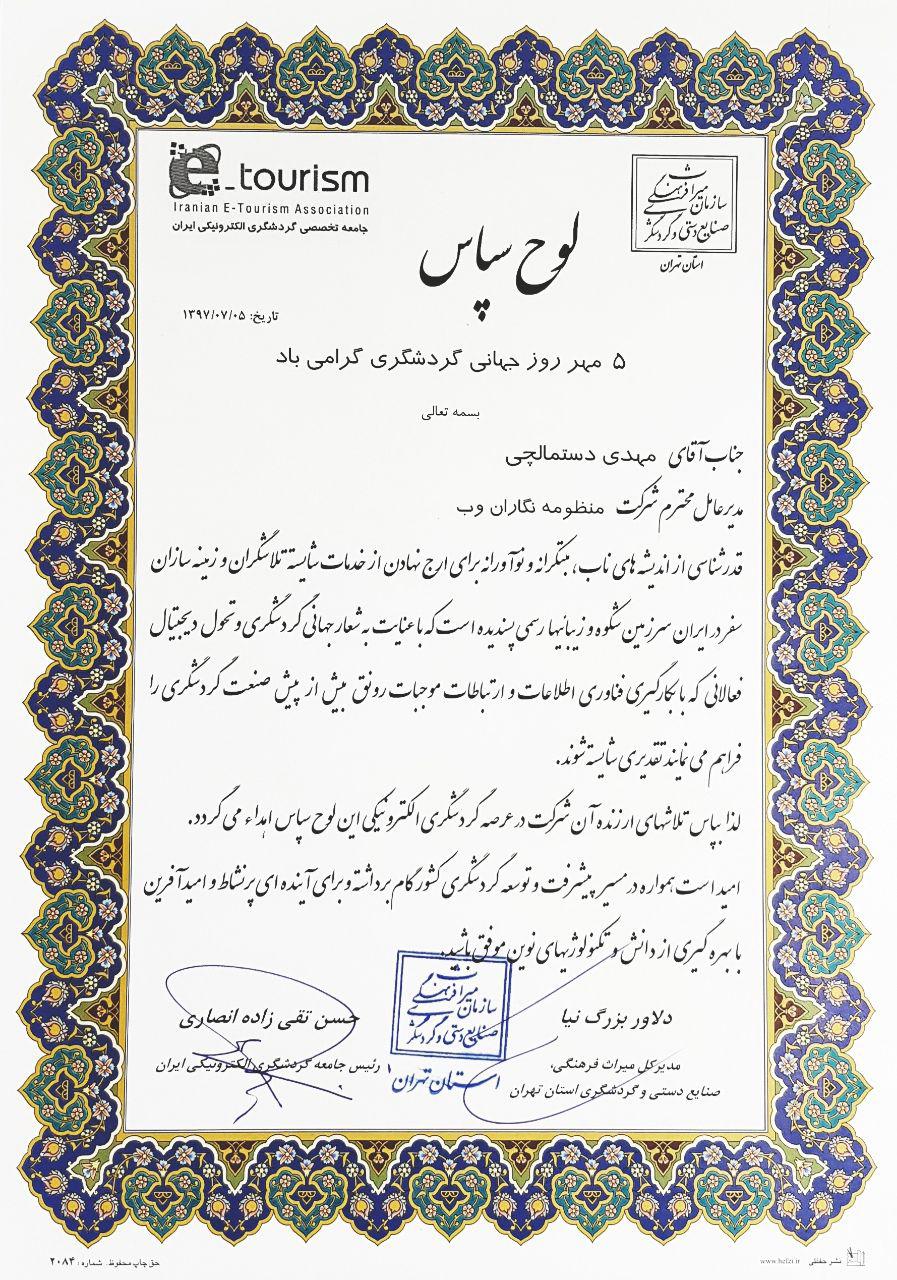 e-tourism
Iranian E-Tourism Association
جامعه تخصصی گردشگری الکترونیکی ایران
سازمان میراث فرهنگی
صنایع دستی و گردشگری
استان تهران
لوح سپاس
تاریخ: ۱۳۹۷/۰۷/۰۵
۵ مهر روز جهانی گردشگری گرامی باد
بسمه تعالی
جناب آقای مهدی دستمالچی
مدیرعامل محترم شرکت منظومه نگاران وب
قدرشناسی از اندیشه های ناب، مبتکرانه و نوآورانه برای ارج نهادن از خدمات شایسته تلاشگران و زمینه سازان
سفر در ایران سرزمین شکوه و زیبائیها رسمی پسندیده است که با عنایت به شعار جهانی گردشگری و تحول دیجیتال
فعالانی که با بکارگیری فناوری اطلاعات و ارتباطات موجبات رونق بیش از پیش صنعت گردشگری را
فراهم می نمایند تقدیری شایسته شوند.
لذا بپاس تلاشهای ارزنده آن شرکت در عرصه گردشگری الکترونیکی این لوح سپاس اهداء می گردد.
امید است همواره در مسیر پیشرفت و توسعه گردشگری کشور گام برداشته و برای آینده ای پرنشاط و امید آفرین
با بهره گیری از دانش و تکنولوژیهای نوین موفق باشید.
دلاور بزرگ نیا
مدیرکل میراث فرهنگی،
صنایع دستی و گردشگری استان تهران
سازمان میراث فرهنگی
صنایع دستی و گردشگری
استان تهران
حسن تقی زاده انصاری
رئیس جامعه گردشگری الکترونیکی ایران
نشر حفظی www.hefzi.ir
حق چاپ محفوظ. شماره: ۲۰۸۴